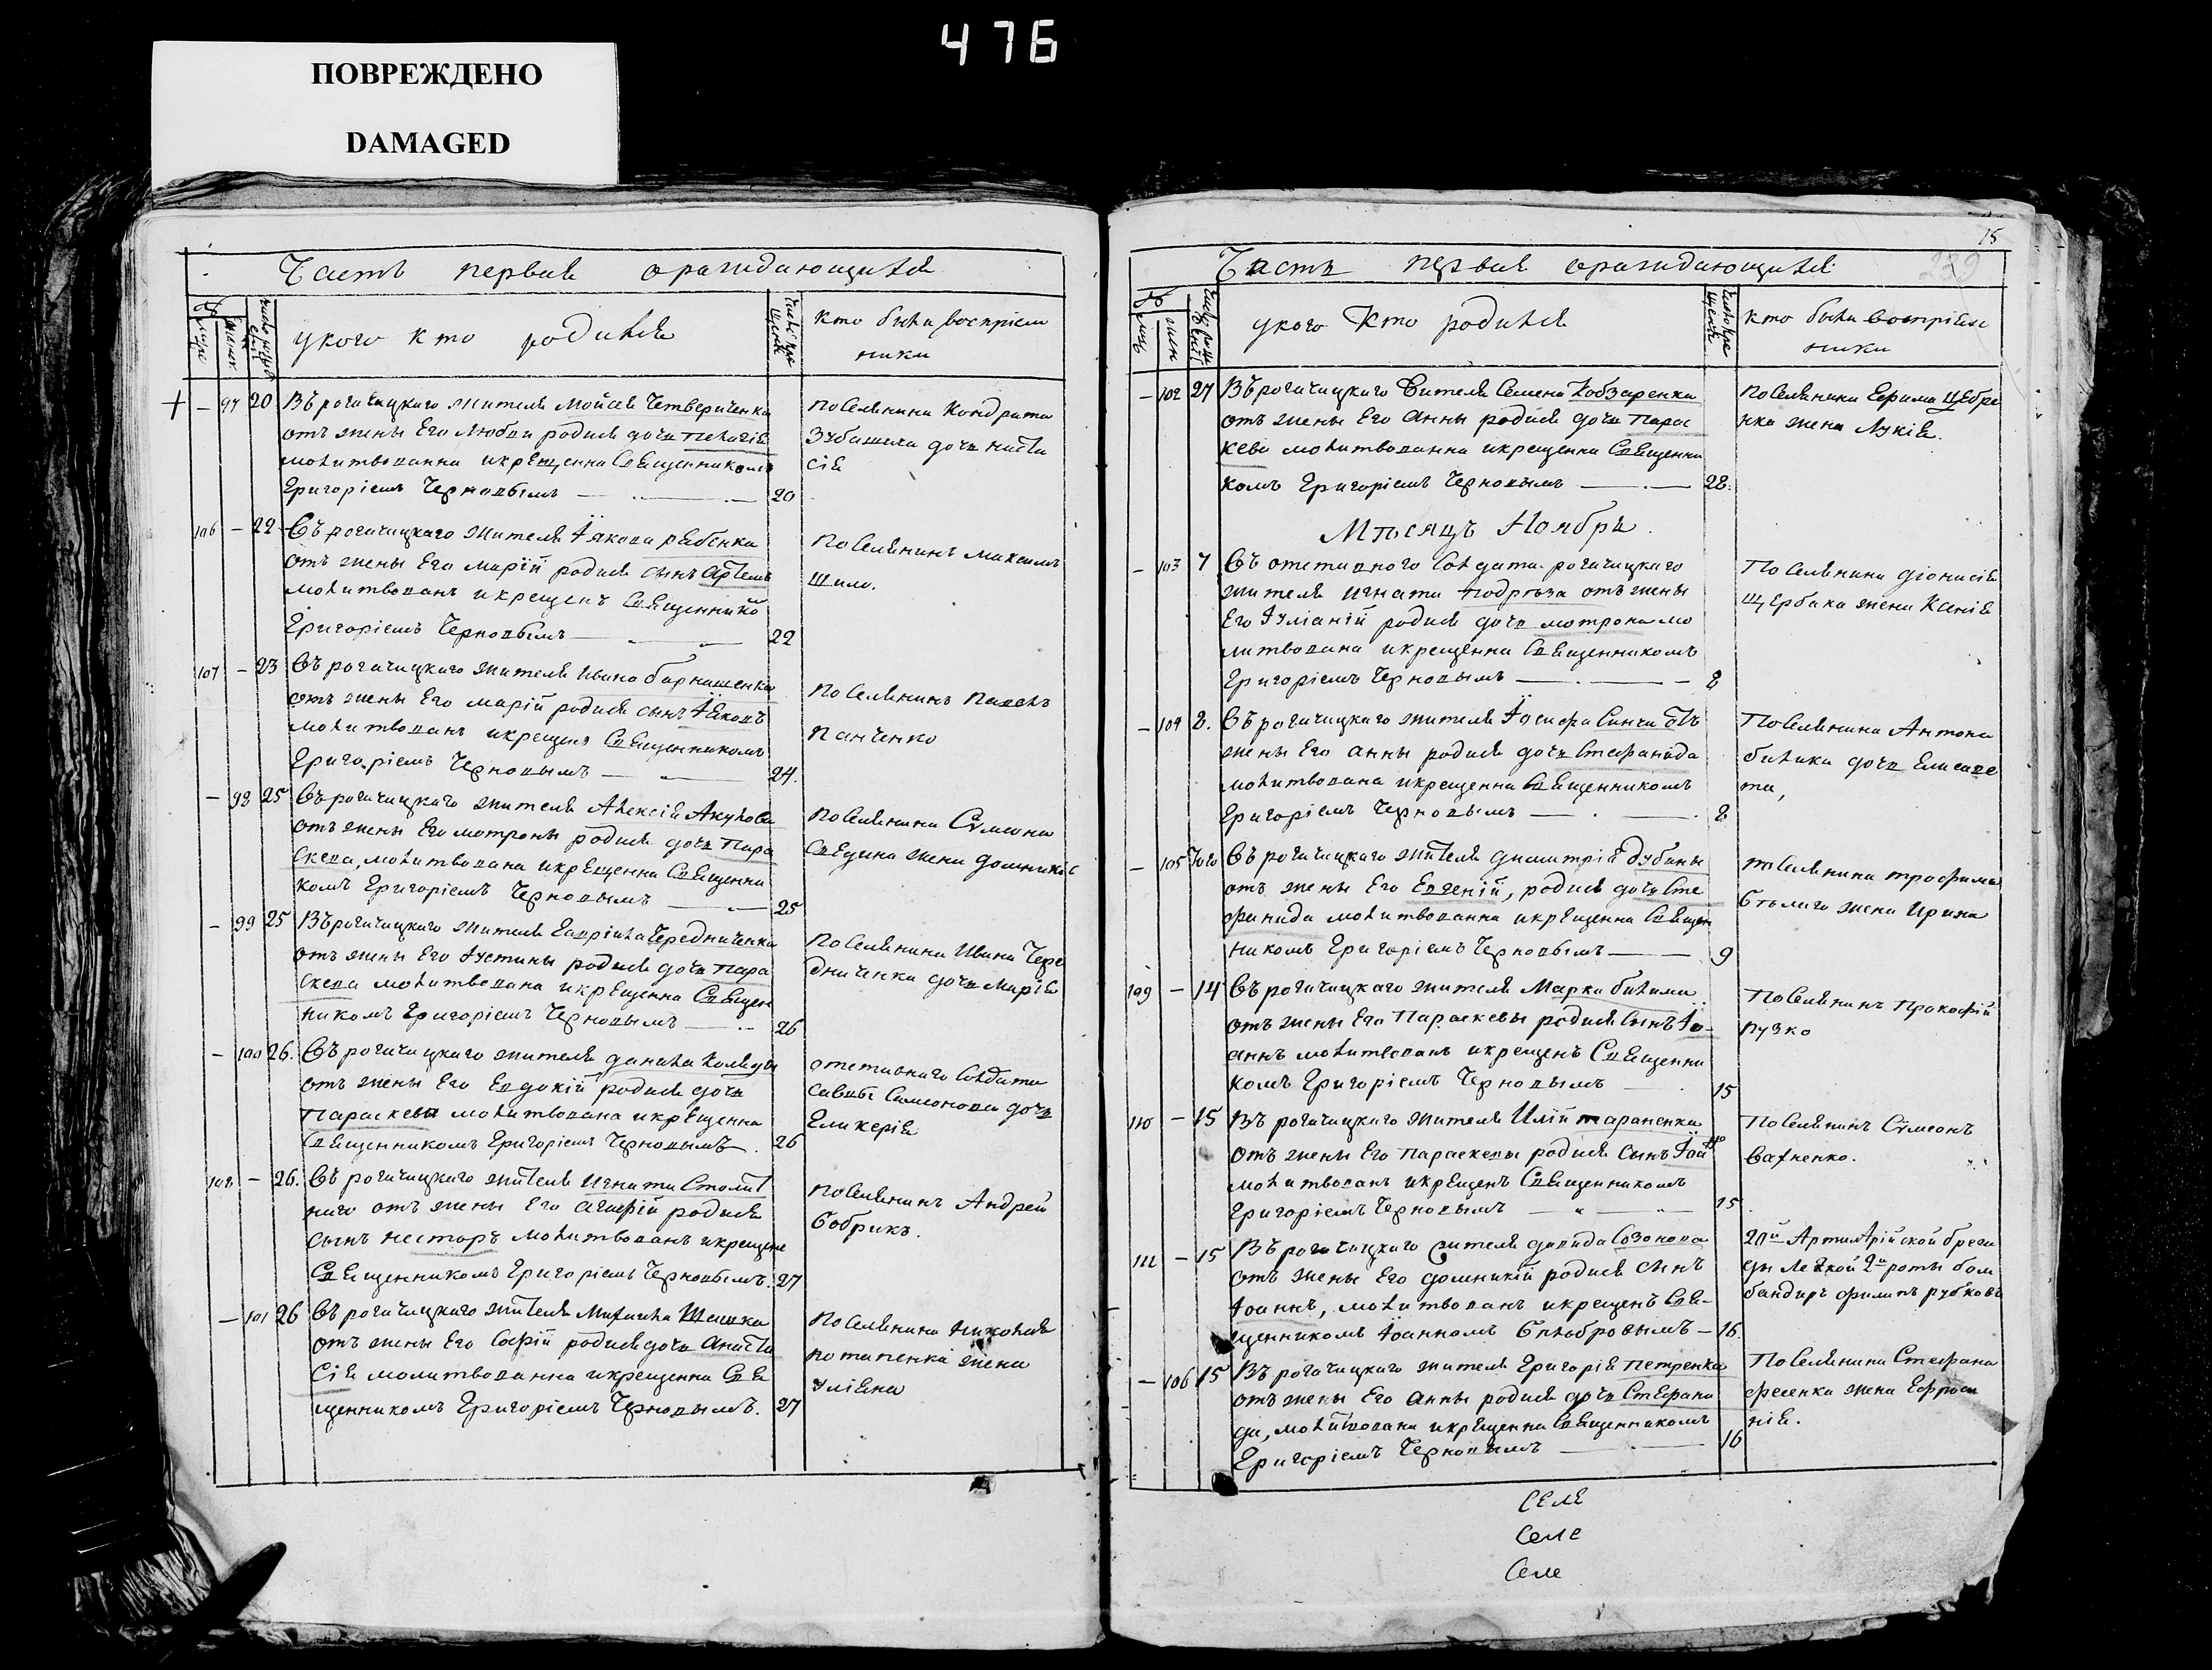 476
ПОВРЕЖДЕНО
DAMAGED
Часть первая ораждающихся
у кого кто родился
кто были восприем
ники
97 20 Въ рогачицкаго жителя Мойсея Четвериченка
отъ жены Его Любви родися дочь Пелагія
молитвованна икрещенна Священникомъ
Григоріемъ Черновымъ 20
поселянина Кондрата
дочь Наста
сія
106 22 Въ рогачицкаго жителя Іякова рабенка
отъ жены Его Марій родися сынъ Артемъ
молитвованъ икрещенъ Священнико
Григоріемъ Черновымъ 22
Поселянинъ Максимъ
Шило.
107 23 Въ рогачицкаго жителя Ивана барнашенка
отъ жены Его Марій родися сынъ Іяковъ
молитвованъ икрещенъ Священникомъ
Григоріемъ Черновымъ 24.
Поселянинъ Павелъ
Панченко
98 25 Въ рогачицкаго жителя Алексія Акулова
отъ жены Его мотроны родися дочь Пара
скева, молитвована икрещенна Священни
комъ Григоріемъ Черновымъ 25
Поселянина Сѵмеона
жена домникія
99 25 Въ рогачицкаго жителя Гавріила Чередниченка
отъ жены Его Іустины родися дочь Пара
скева молитвована икрещенна Священ
никомъ Григоріемъ Черновымъ 26
Поселянина Ивана Чере
дниченка дочь Марія
100 26. Въ рогачицкаго жителя данила Коляды
отъ жены Его Евдокій родися дочь
Параскева молитвована икрещенна
Священникомъ Григоріемъ Черновымъ. 26
отставнаго Солдата
саввы Симонова дочь
Гликерія
108 26. Въ рогачицкаго жителя Игната Столит
наго отъ жены Его Агафій родися
сынъ Несторъ молитвованъ икрещенъ
Священникомъ Григоріемъ Черновымъ. 27
Поселянинъ Андрей
бобрикъ.
101 26 Въ рогачицкаго жителя Михаила Шашка
отъ жены Его Софій родися дочь Анаста
сія молитвованна икрещенна Свя
щенникомъ Григоріемъ Черновымъ. 27
Поселянина Николая
потапенка жена
Уліяна
15
Часть первая ораждающихся
у кого Кто родился
Кто были воспріем
ники
102 27 Въ рогачицкаго жителя Семена Кобзаренка
отъ жены Его Анны родися дочь Парас
кева молитвованна икрещенна Священни
комъ Григоріемъ Черновымъ 28.
Поселянина Ефима Щебре
нка жена Лукія.
Мѣсяцъ Ноябрь.
103 7 Въ отставного Солдата рогачицкаго
жителя Игната Подрѣза отъ жены
Его Іуліаній родися дочь мотрона мо
литвована икрещенна Священникомъ
Григоріемъ Черновымъ 8
Поселянина діонисія
щербака жена Ксенія
104 8. Въ рогачицкаго жителя Іосифа Синчи отъ
жены Его Анны родися дочь Стефанида
молитвована икрещенна Священникомъ
Григоріемъ Черновымъ 8
Поселянина Антона
билика дочь Елисаве
та,
105 того Въ рогачицкаго жителя димитрія дубины
отъ жены Его Евгеній, родися дочь Сте
фанида молитвованна икрещенна Священ
никомъ Григоріемъ Черновымъ 9
поселянина трофима
бѣлаго жена Ирина
109 14 Въ рогачицкаго жителя Марка билима
отъ жены Его Параскевы родися Сынъ Іо-
аннъ молитвованъ икрещенъ Священни
комъ Григоріемъ Черновымъ 15
Поселянинъ Прокофій
пузко
110 15 Въ рогачицкаго жителя Илій тараненка
отъ жены Его Параскевы родися сынъ
молитвованъ икрещенъ Священникомъ
Григоріемъ Черновымъ 15
Поселянинъ Сѵмеонъ
Вахненко.
111 15 Въ рогачицкаго жителя давида Созонова
отъ жены Его домникій родися сынъ
Іоаннъ, молитвованъ икрещенъ Свя-
щенникомъ Іоанномъ Бѣлобровымъ 16.
20й Артилярійской брега
ды легкой 2й роты бом
бандиръ филипъ рубковъ
106 15 Въ рогачицкаго жителя Григорія Петренка
отъ жены Его Анны родися дочь Стефани
да, молитвована икрещенна Священникомъ
Григоріемъ Черновымъ 16
Поселянина Стефана
фесенка жена Ефроси
нія.
селе
Селе
Селе